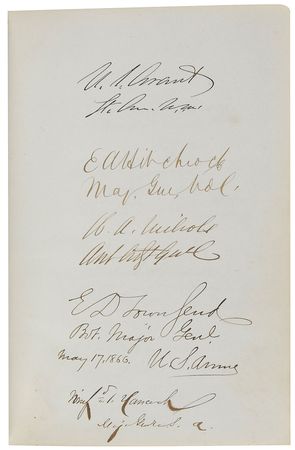 U. S. Grant
Lt. Gen. U.S.A.
E A Hitchcock
Maj. Gen. Vol.
W. A. Nichols
Asst Adjt Genl
E D Townsend
Bvt. Major Genl.
May 17, 1866. U S Army
Winfd S. Hancock
Maj. Gen. U.S. a.